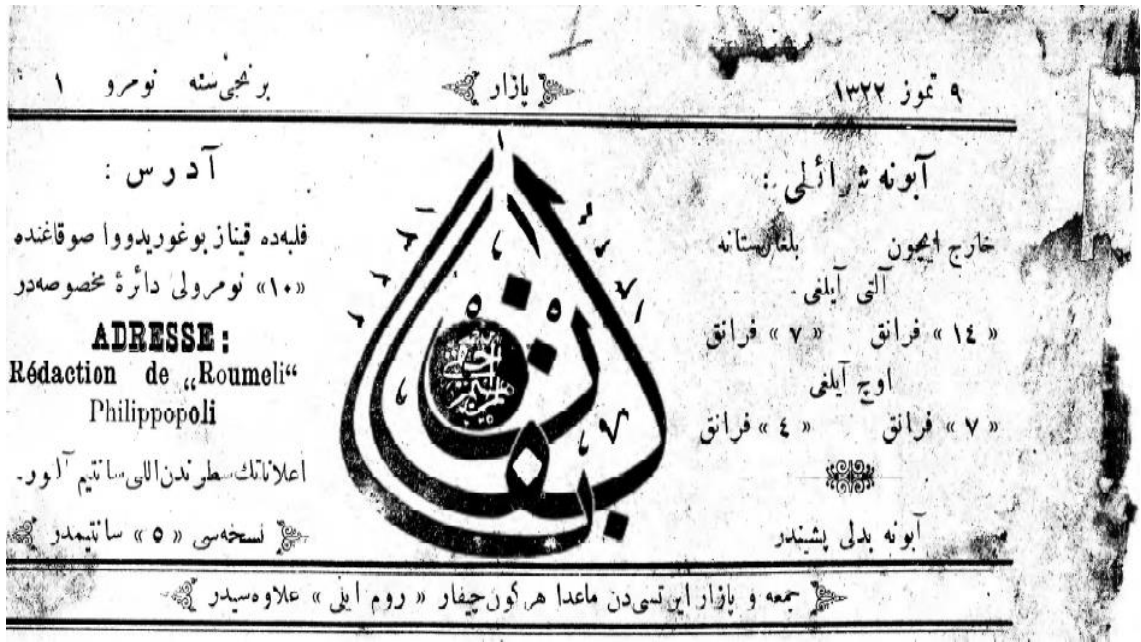 ٩ تموز ١٣٢٢ پازار برنجی سنه نومرو ١
آبونه شرائطی :
خارج ایچون بلغارستانه
آلتی آیلغی
« ١٤ » فرانق « ٧ » فرانق
اوچ آیلغی
« ٧ » فرانق « ٤ » فرانق
آبونه بدلی پشیندر
بلقان
آدرس :
فلبه‌ده قیناز بوغوریدووا صوقاغنده
«١٠» نومرولی دائرهٔ مخصوصه‌در
ADRESSE:
Rédaction de „Roumeli“
Philippopoli
اعلاناتك سطرندن اللی سانتیم آلنور.
نسخه‌سی « ٥ » سانتیمدر
جمعه و پازار ایرتسی‌دن ماعدا هر کون چیقار « روم ایلی » علاوه‌سیدر